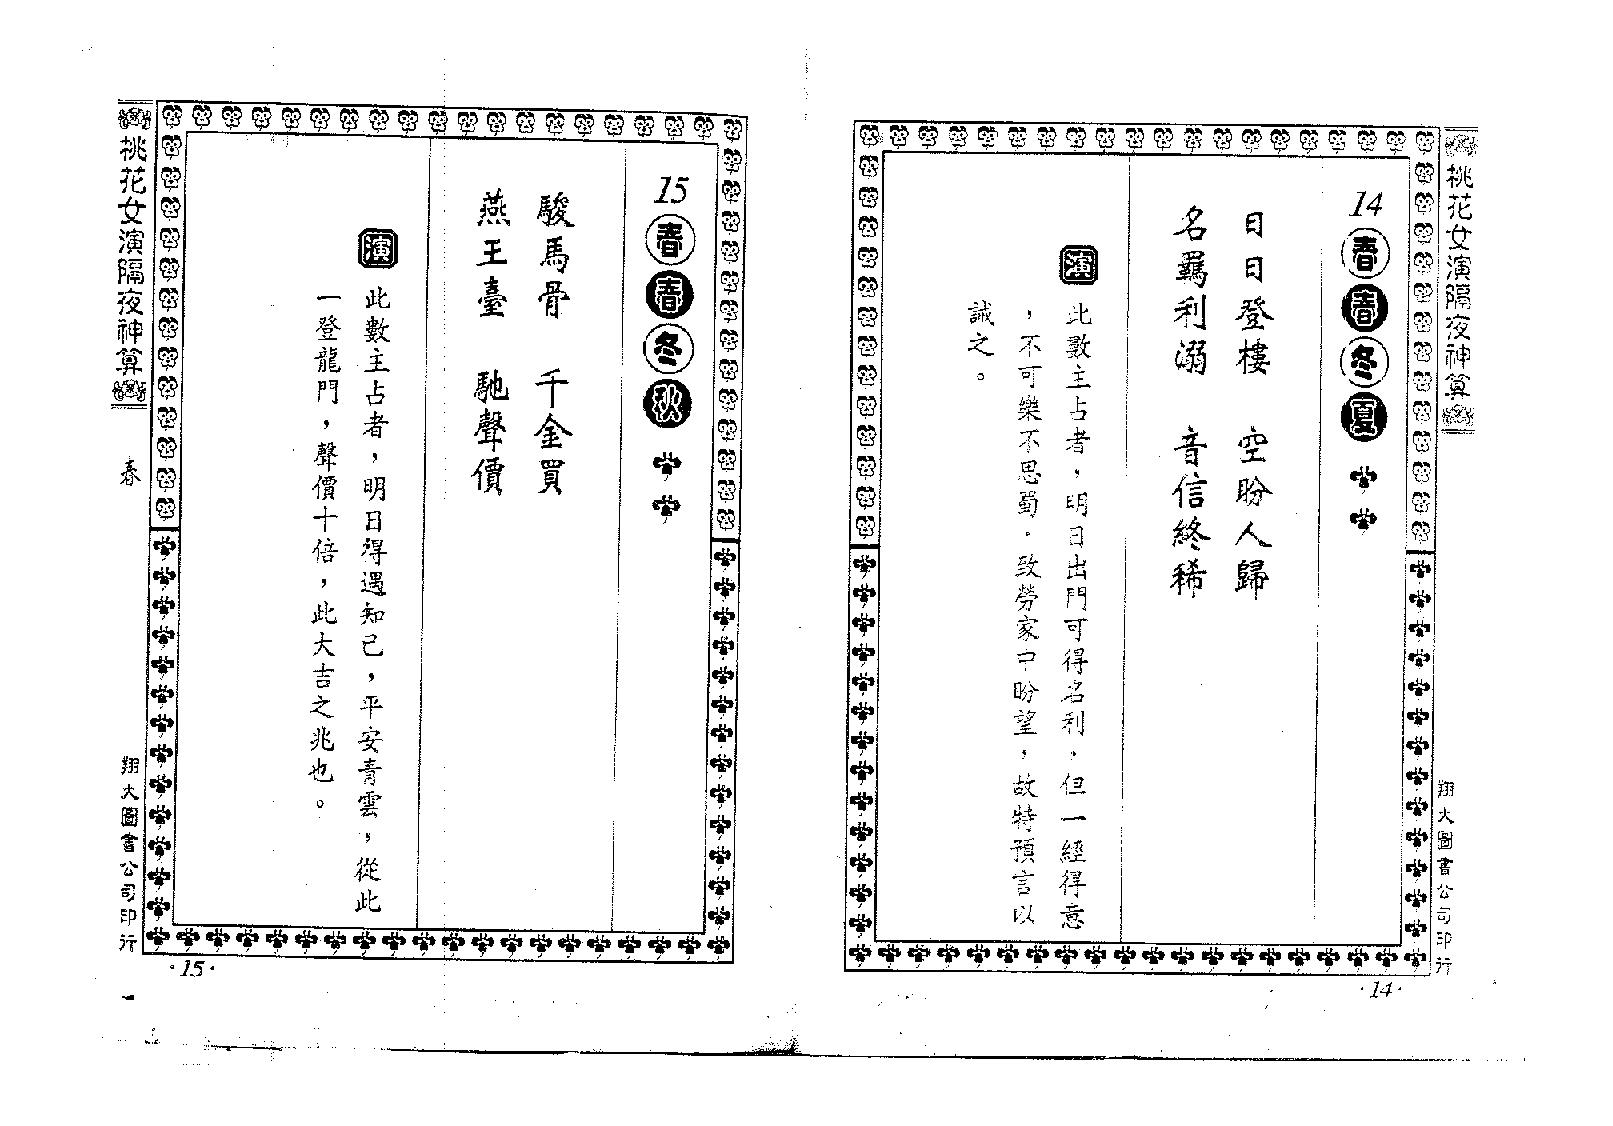 桃花女演隔夜神算
14 春春冬夏
日日登樓　空盼人歸
名羈利溺　音信終稀
演
此數主占者，明日出門可得名利，但一經得意
，不可樂不思蜀，致勞家中盼望，故特預言以
誡之。
翔大圖書公司印行
·14·
15 春春冬秋
駿馬骨　千金買
燕王臺　馳聲價
演
此數主占者，明日得遇知己，平安青雲，從此
一登龍門，聲價十倍，此大吉之兆也。
桃花女演隔夜神算
春
翔大圖書公司印行
·15·